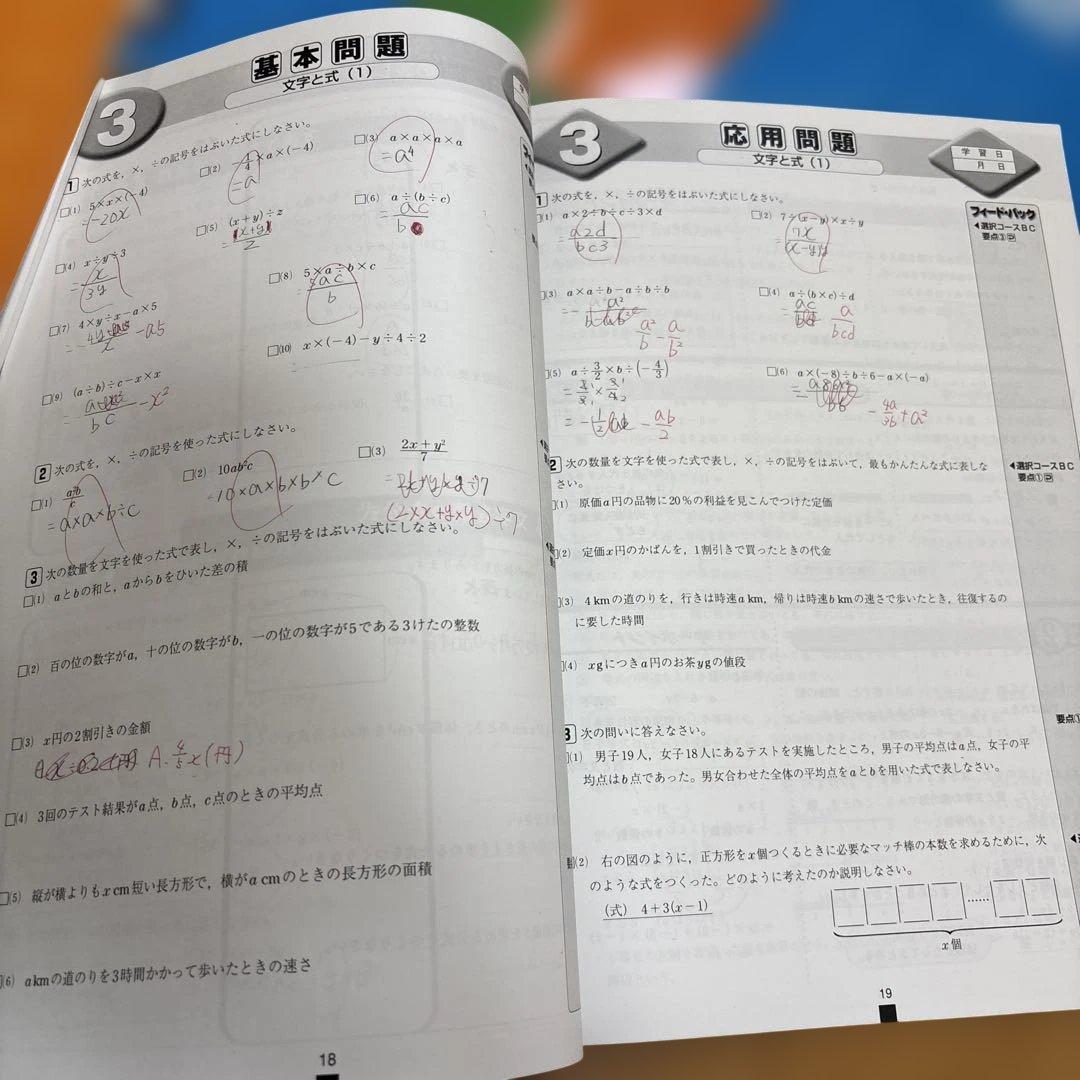 基本問題
文字と式 (1)
3
1 次の式を，×，÷の記号をはぶいた式にしなさい。
□(1) 5×x×(−4)
=−20x
□(2) ×a×(−4)
=a
□(3) a×a×a×a
=a⁴
□(4) x÷y÷3
=x/3y
□(5) (x+y)÷z
□(6) a÷(b÷c)
=ac/b
□(7) 4×y÷x−a×5
−a5
□(8) 5×a÷b×c
=5ac/b
□(9) (a÷b)÷c−x×x
−x²
□(10) x×(−4)−y÷4÷2
2 次の式を，×，÷の記号を使った式にしなさい。
□(1)
=a×a×b÷c
□(2) 10ab²c
=10×a×b×b×c
□(3) (2x+y²)/7
(2×x+y×y)÷7
3 次の数量を文字を使った式で表し，×，÷の記号をはぶいた式にしなさい。
□(1) aとbの和と，aからbをひいた差の積
□(2) 百の位の数字がa，十の位の数字がb，一の位の数字が5である3けたの整数
□(3) x円の2割引きの金額
A. 4/5 x(円)
□(4) 3回のテスト結果がa点，b点，c点のときの平均点
□(5) 縦が横よりもxcm短い長方形で，横がacmのときの長方形の面積
(6) akmの道のりを3時間かかって歩いたときの速さ
18
3
応用問題
文字と式 (1)
学習日
月 日
フィード・バック
◀選択コースBC
要点①
1 次の式を，×，÷の記号をはぶいた式にしなさい。
(1) a×2÷b÷c÷3×d
=a2d/bc3
□(2) 7÷(x−y)×x÷y
=7x/(x−y)y
(3) a×a÷b−a÷b÷b
a²/b − a/b²
□(4) a÷(b×c)÷d
a/bcd
(5) a÷3/2×b÷(−4/3)
−ab/2
□(6) a×(−8)÷b÷6−a×(−a)
−4a/3b+a²
2 次の数量を文字を使った式で表し，×，÷の記号をはぶいて，最もかんたんな式に表しな
さい。
◀選択コースBC
要点①
(1) 原価a円の品物に20%の利益を見こんでつけた定価
(2) 定価x円のかばんを，1割引きで買ったときの代金
(3) 4kmの道のりを，行きは時速akm，帰りは時速bkmの速さで歩いたとき，往復するの
に要した時間
(4) xgにつきa円のお茶ygの値段
3 次の問いに答えなさい。
要点①
(1) 男子19人，女子18人にあるテストを実施したところ，男子の平均点はa点，女子の平
均点はb点であった。男女合わせた全体の平均点をaとbを用いた式で表しなさい。
(2) 右の図のように，正方形をx個つくるときに必要なマッチ棒の本数を求めるために，次
のような式をつくった。どのように考えたのか説明しなさい。
(式) 4+3(x−1)
……
x個
19